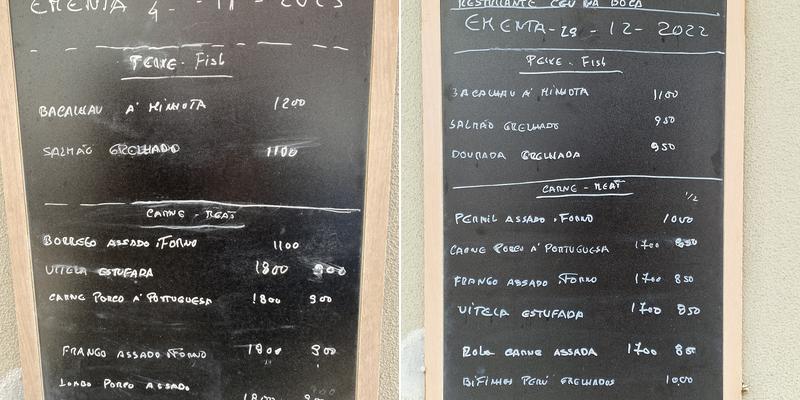 EMENTA 4 - 11 - 2023
PEIXE - FISH
BACALHAU A' MINHOTA 1200
SALMÃO GRELHADO 1100
CARNE - MEAT
BORREGO ASSADO FORNO 1100
VITELA ESTUFADA 1800 900
CARNE PORCO A' PORTUGUESA 1800 900
FRANGO ASSADO FORNO 1800 900
LOMBO PORCO ASSADO
RESTAURANTE CEU NA BOCA
EMENTA - 28 - 12 - 2022
PEIXE - FISH
BACALHAU A' MINHOTA 1100
SALMÃO GRELHADO 950
DOURADA GRELHADA 950
CARNE - MEAT
1/2
PERNIL ASSADO FORNO 1000
CARNE PORCO A' PORTUGUESA 1700 850
FRANGO ASSADO FORNO 1700 850
VITELA ESTUFADA 1700 850
ROLO CARNE ASSADA 1700 850
BIFINHOS PERÚ GRELHADOS 1000